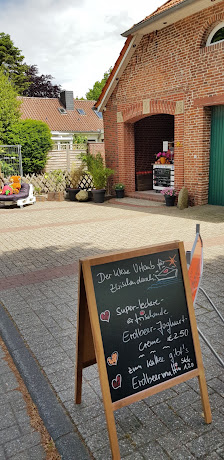 Der kleine Urlaub für
zwischendurch
super-leckere-
erfrischende
Erdbeer-Joghurt-
Creme € 2.50
zum Kaffee gibt's
Erdbeerminis
Stk 1.20